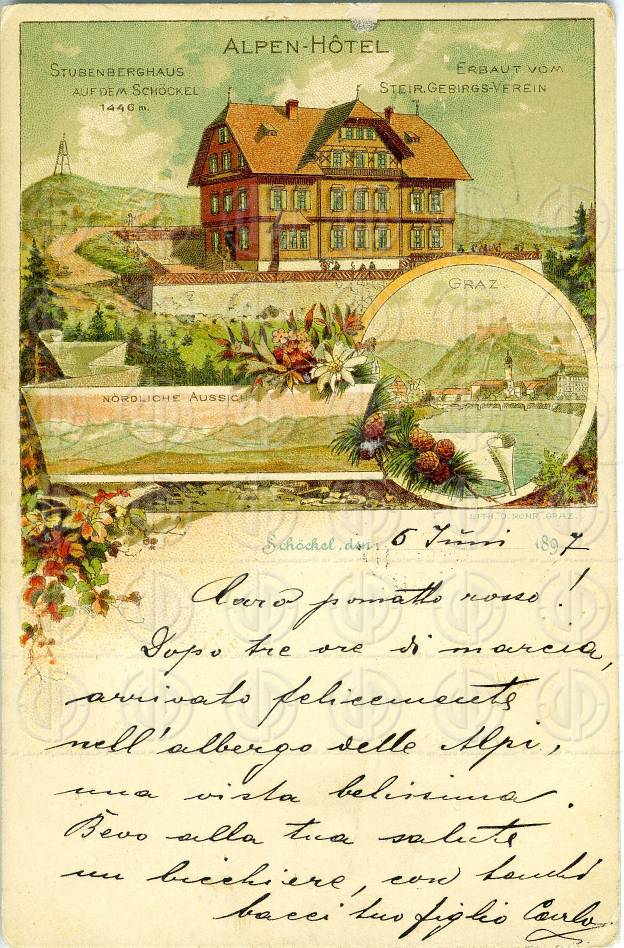 ALPEN-HÔTEL
STUBENBERGHAUS
AUF DEM SCHÖCKEL
1446 m.
ERBAUT VOM
STEIR. GEBIRGS-VEREIN
GRAZ.
NÖRDLICHE AUSSICH
LITH. V. ROHR, GRAZ.
Schöckel, den 5 Juni 1897
Caro pomatto rosso!
Dopo tre ore di marcia,
arrivato felicemente
nell'albergo delle Alpi,
una vista belissima.
Bevo alla tua salute
un bicchiere, con tanti
bacci tuo figlio Carlo